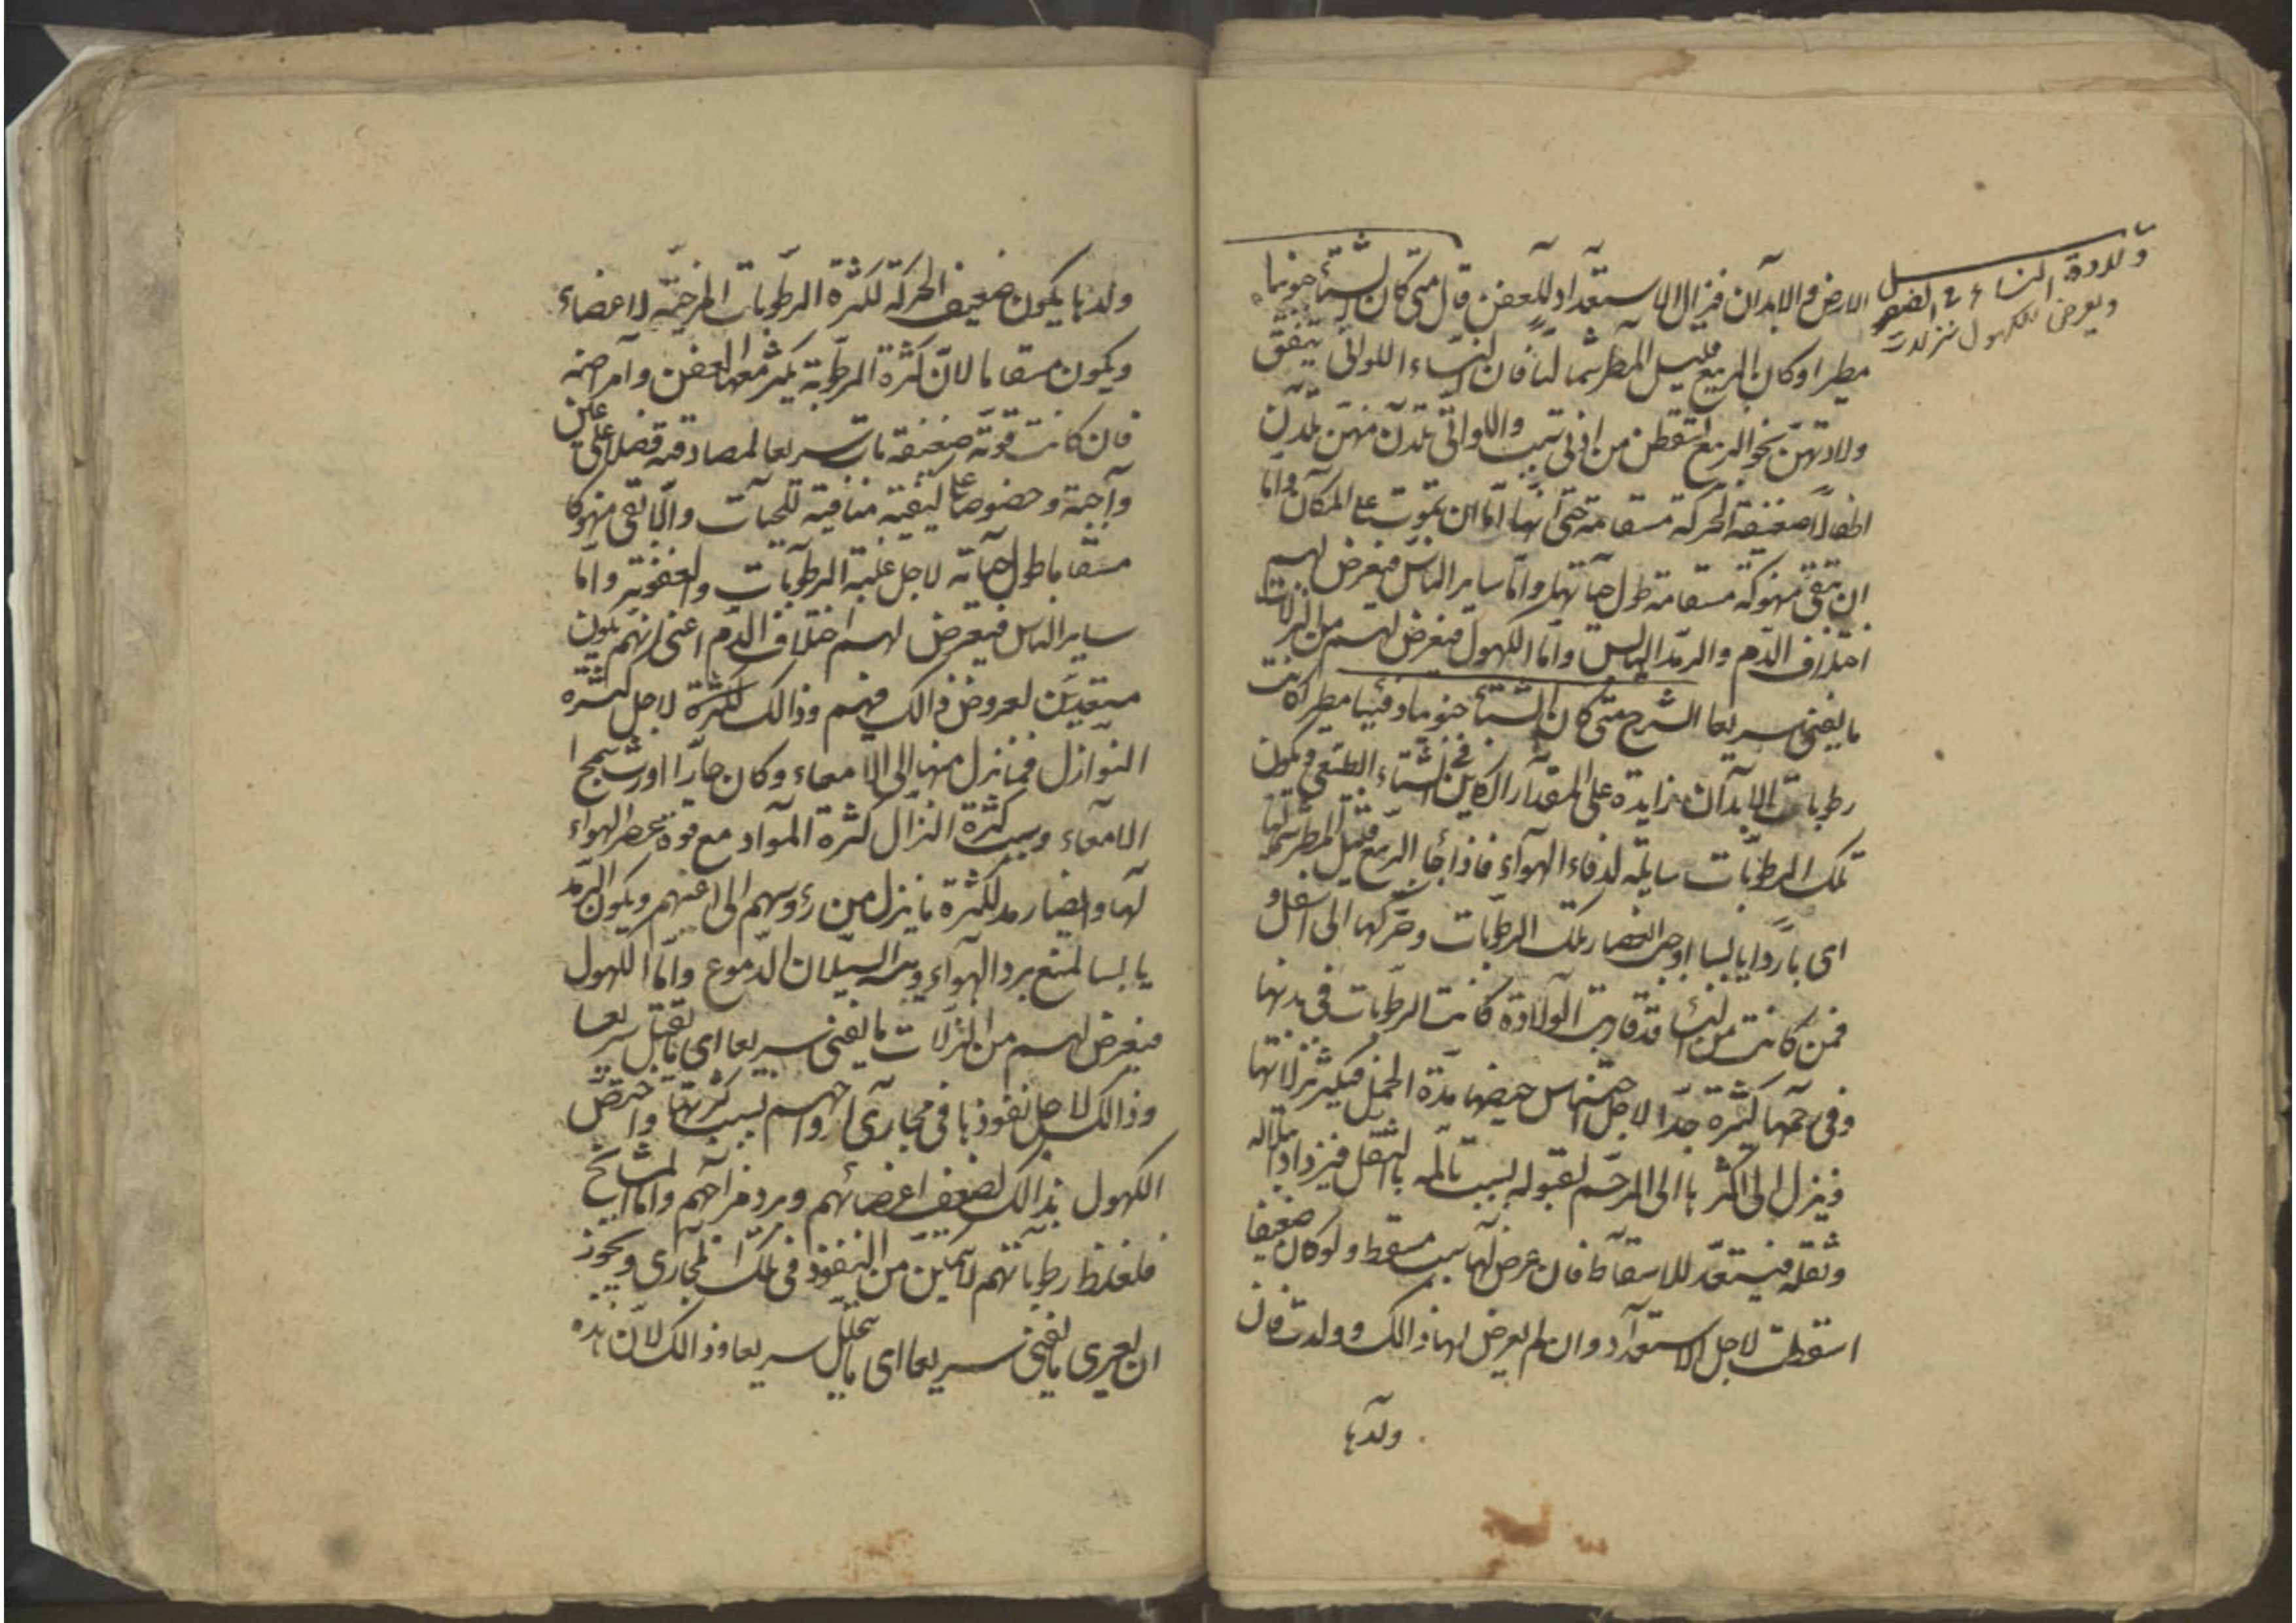 الارض والابدان فيزال الاستعداد للعفن قال متى كان الشتاء جنوبيا
مطيرا وكان الربيع قليل المطر شماليا فان النساء اللواتى يتفق
ولادتهن نحو الربيع اسقطن من ادنى سبب واللواتى تلدن منهن تلدن
اطفالا ضعيفة الحركة مسقامة حتى انها اما ان تموت على المكان واما
ان تبقى منهوكة مسقامة طول حياتها واما ساير الناس فيعرض لهم
اختلاف الدم والرمد اليابس واما الكهول فيعرض لهم من النزلات
ما يفنى سريعا الشرح متى كان الشتاء جنوبيا دفئيا مطيرا كانت
رطوبات الابدان زايدة على المقدار الكاين فى الشتاء الطبيعى ويكون
تلك الرطوبات سايلة لدفاء الهواء فاذا جاء الربيع قليل المطر شماليا
اى باردا يابسا اوجب انعصار تلك الرطوبات وحركها الى اسفل و
فمن كانت من النساء قد قاربت الولادة كانت الرطوبات فى بدنها
وفى رحمها كثيرة جدا لاجل احتباس حيضها مدة الحمل فيكثر نزلاتها
فينزل الى اكثرها الى الرحم لقبوله بسبب تالمه بالثقل فيزداد
وثقله فيستعد للاسقاط فان عرض لها سبب مسقط ولو كان ضعيفا
اسقطت لاجل الاستعداد وان لم يعرض لها ذالك وولدت فان
ولدها
ولادة النساء
ويعرض للكهول نزلات
ولدها يكون ضعيف الحركة لكثرة الرطوبات المرخية لاعضاء
ويكون مسقاما لان كثرة الرطوبة يكثر معها العفن وامراضه
فان كانت قوته ضعيفة مات سريعا لمصادفته فضلا
واجمة وخصوصا على كيفية منافية للحيات والا بقى منهوكا
مسقاما طول حياته لاجل غلبة الرطوبات والعفونة واما
ساير الناس فيعرض لهم اختلاف الدم اعنى انهم يكون
مستعدين لعروض ذالك فيهم وذالك لكثرة لاجل كثرة
النوازل فما نزل منها الى الامعاء وكان حارا اورث سحج ا
الامعاء وسبب كثرة النزال كثرة المواد مع قوة عصر الهواء
لها وايضا رمد لكثرة ما ينزل من رؤوسهم الى اعينهم ويكون الرمد
يابسا لمنع برد الهواء ويبسه السيلان الدموع واما الكهول
فيعرض لهم من النزلات ما يفنى سريعا اى ما يقتل سريعا
وذالك لاجل نفوذها فى مجارى ارواحهم بسبب كثرتها واختص
الكهول بذالك لضعف اعضائهم وبرد مزاجهم واما المشايخ
فلغلظ رطوباتهم لا يتمكن من النفوذ فى تلك المجارى ويجوز
ان يعرى ما يفنى سريعا اى ما يتحلل سريعا وذالك لان هذه